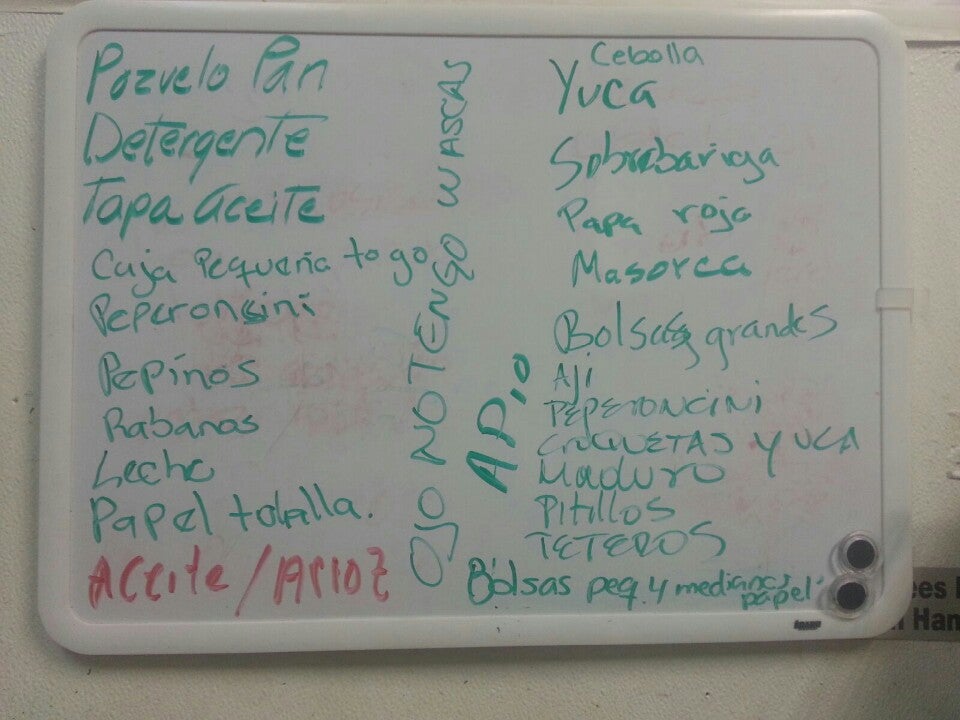 Pozuelo Pan
Detergente
Tapa aceite
Caja Pequeña to go
Peperonsini
Pepinos
Rabanos
Leche
Papel tohalla.
Aceite / Arroz
OJO NO TENGO WASCAS
APIO
Cebolla
Yuca
Sobrebariga
Papa roja
Masorca
Bolsas grandes
AJi
PEPERONCINI
CROQUETAS YUCA
Maduro
Pitillos
TETEROS
Bolsas peq. y medianas
papel
ees
Han